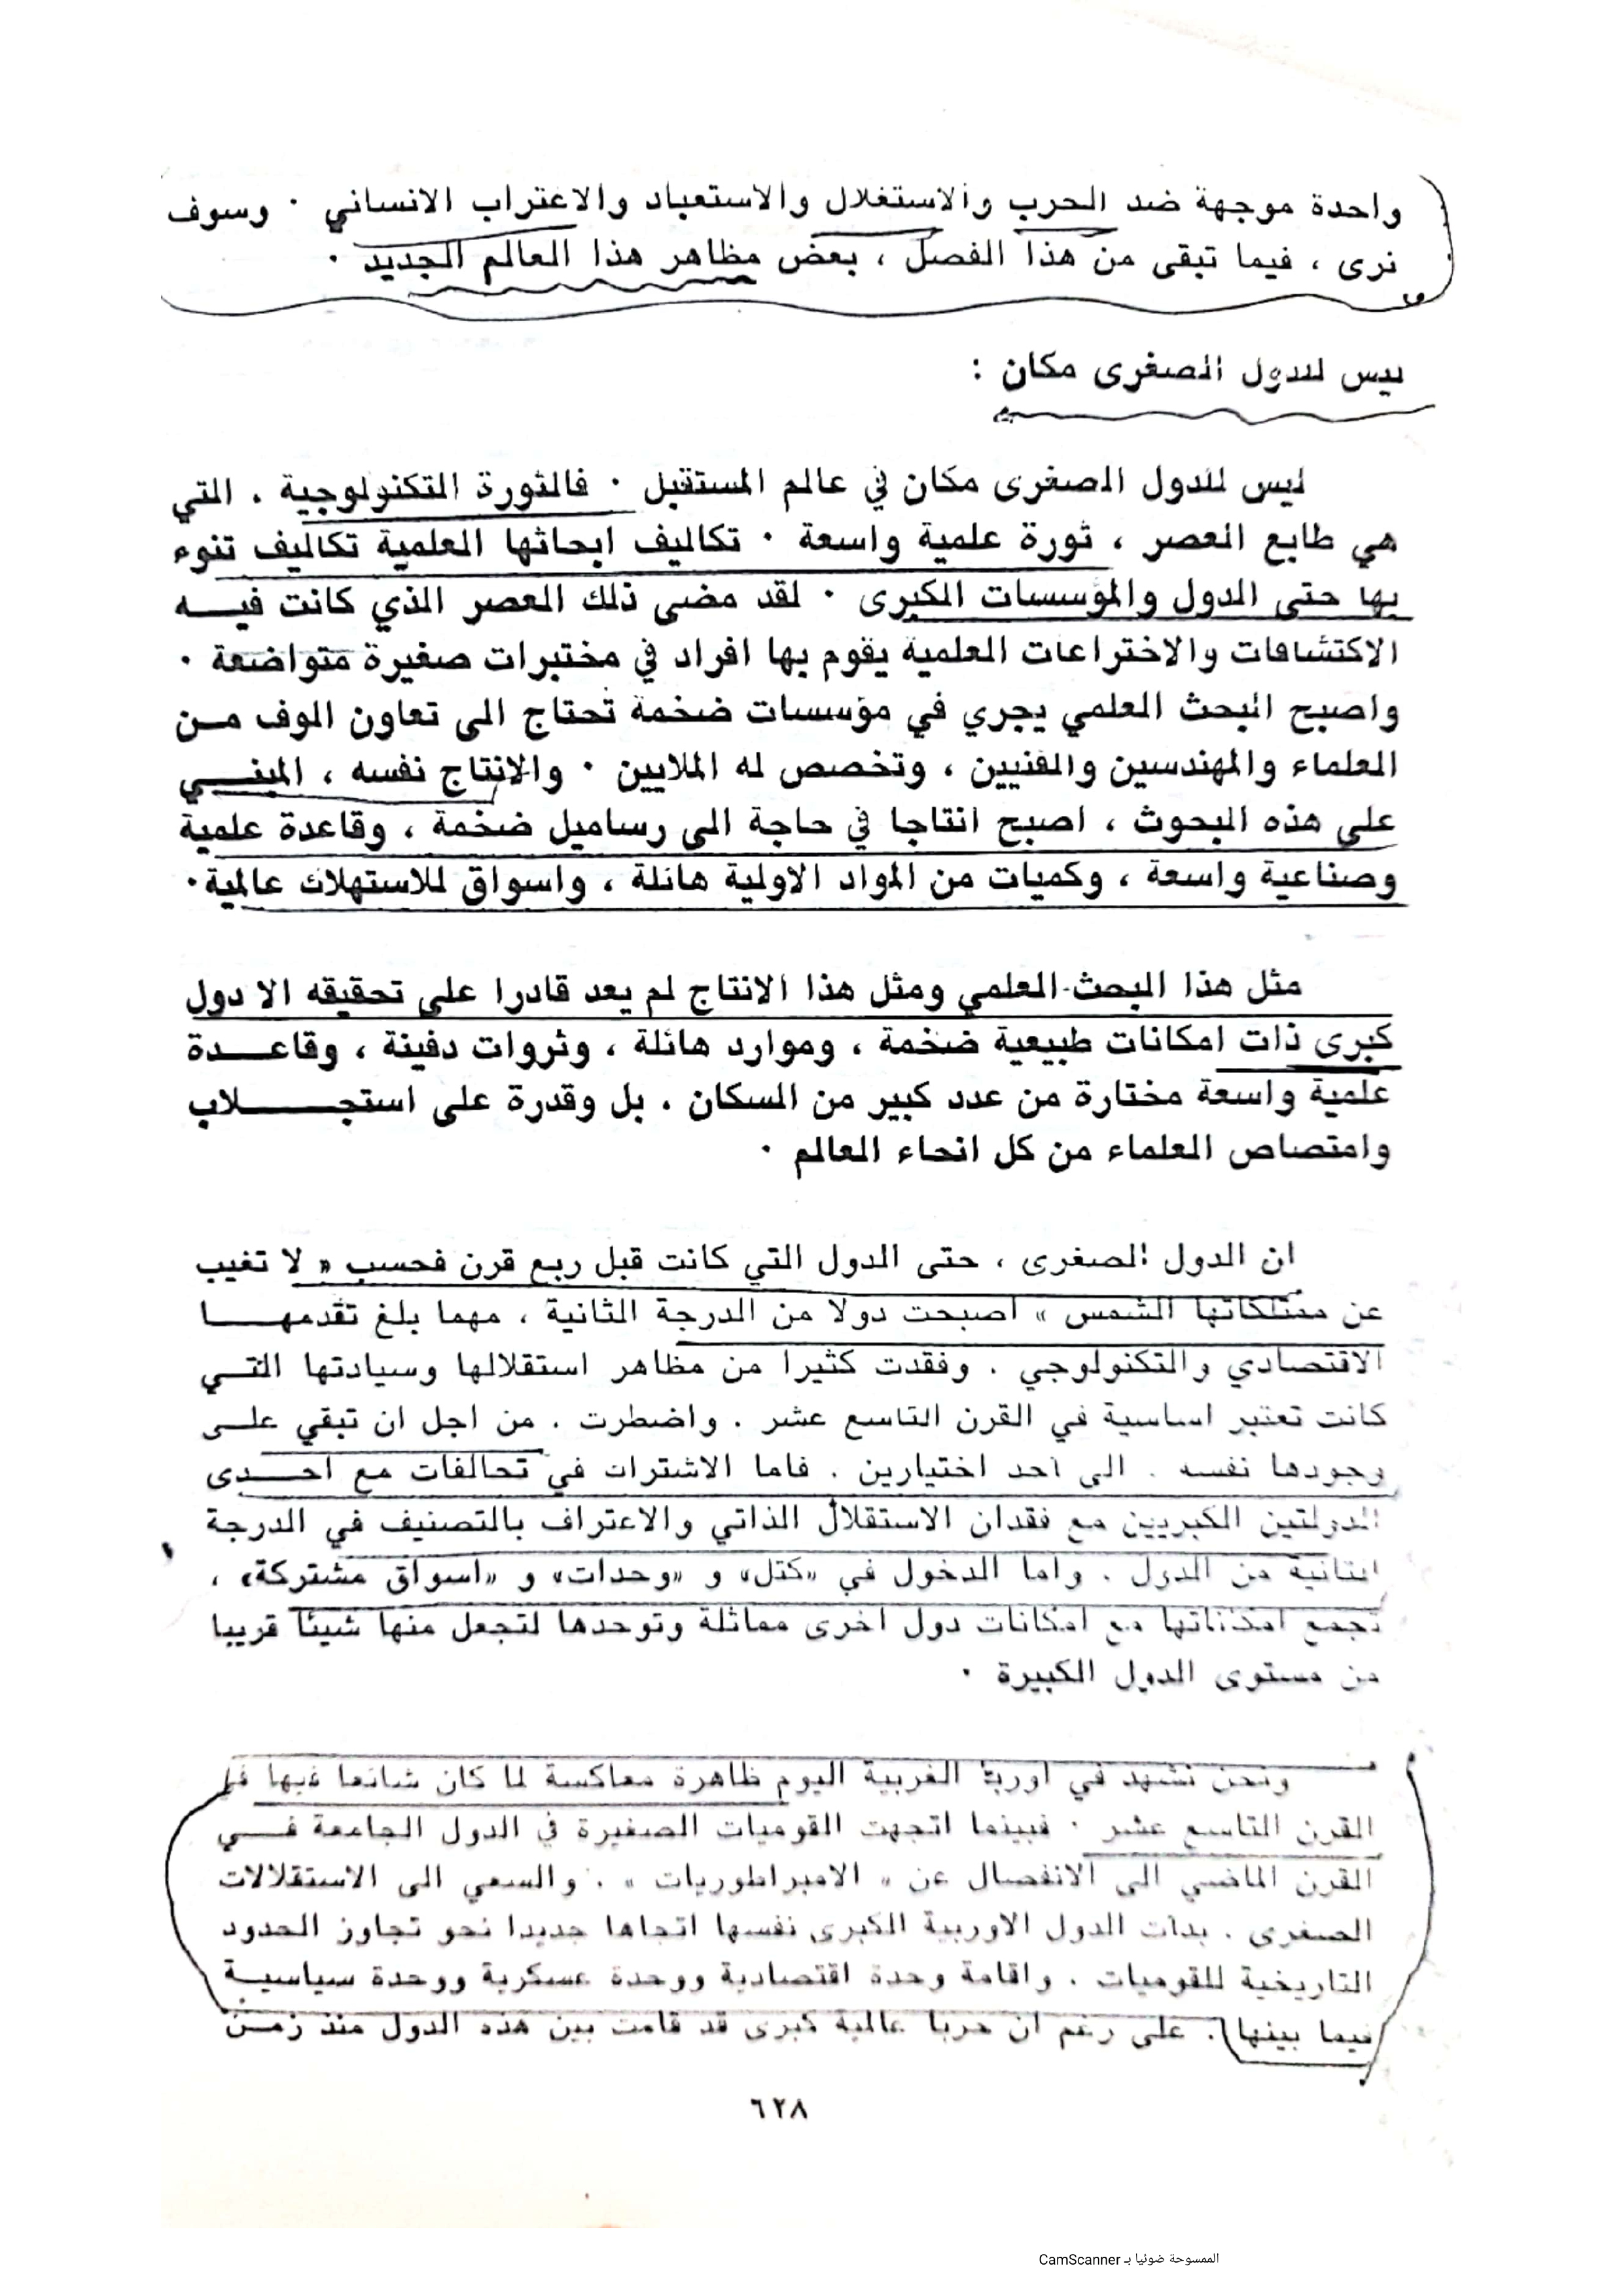 واحدة موجهة ضد الحرب والاستغلال والاستعباد والاغتراب الانساني ٠ وسوف
نرى ، فيما تبقى من هذا الفصل ، بعض مظاهر هذا العالم الجديد ٠
ليس للدول الصغرى مكان :
ليس للدول الصغرى مكان في عالم المستقبل ٠ فالثورة التكنولوجية ، التي
هي طابع العصر ، ثورة علمية واسعة ٠ تكاليف ابحاثها العلمية تكاليف تنوء
بها حتى الدول والمؤسسات الكبرى ٠ لقد مضى ذلك العصر الذي كانت فيــه
الاكتشافات والاختراعات العلمية يقوم بها افراد في مختبرات صغيرة متواضعة ٠
واصبح البحث العلمي يجري في مؤسسات ضخمة تحتاج الى تعاون الوف مــن
العلماء والمهندسين والفنيين ، وتخصص له الملايين ٠ والانتاج نفسه ، المبنــي
على هذه البحوث ، اصبح انتاجا في حاجة الى رساميل ضخمة ، وقاعدة علمية
وصناعية واسعة ، وكميات من المواد الاولية هائلة ، واسواق للاستهلاك عالمية ٠
مثل هذا البحث العلمي ومثل هذا الانتاج لم يعد قادرا على تحقيقه الا دول
كبرى ذات امكانات طبيعية ضخمة ، وموارد هائلة ، وثروات دفينة ، وقاعــدة
علمية واسعة مختارة من عدد كبير من السكان ، بل وقدرة على استجــــلاب
وامتصاص العلماء من كل انحاء العالم ٠
ان الدول الصغرى ، حتى الدول التي كانت قبل ربع قرن فحسب « لا تغيب
عن ممتلكاتها الشمس » اصبحت دولا من الدرجة الثانية ، مهما بلغ تقدمهــا
الاقتصادي والتكنولوجي ، وفقدت كثيرا من مظاهر استقلالها وسيادتها التــي
كانت تعتبر اساسية في القرن التاسع عشر ، واضطرت ، من اجل ان تبقي علــى
وجودها نفسه ، الى احد اختيارين ، فاما الاشتراك في تحالفات مع احــدى
الدولتين الكبريين مع فقدان الاستقلال الذاتي والاعتراف بالتصنيف في الدرجة
الثانية من الدول ، واما الدخول في «كتل» و «وحدات» و «اسواق مشتركة» ،
تجمع امكاناتها مع امكانات دول اخرى مماثلة وتوحدها لتجعل منها شيئا قريبا
من مستوى الدول الكبيرة ٠
ونحن نشهد في اوربة الغربية اليوم ظاهرة معاكسة لما كان شائعا فيها في
القرن التاسع عشر ٠ فبينما اتجهت القوميات الصغيرة في الدول الجامعة فــي
القرن الماضي الى الانفصال عن « الامبراطوريات » ، والسعي الى الاستقلالات
الصغرى ، بدأت الدول الاوربية الكبرى نفسها اتجاها جديدا نحو تجاوز الحدود
التاريخية للقوميات ، واقامة وحدة اقتصادية ووحدة عسكرية ووحدة سياسيــة
فيما بينها ، على رغم ان حربا عالمية كبرى قد قامت بين هذه الدول منذ زمــن
٦٢٨
الممسوحة ضوئيا بـ CamScanner